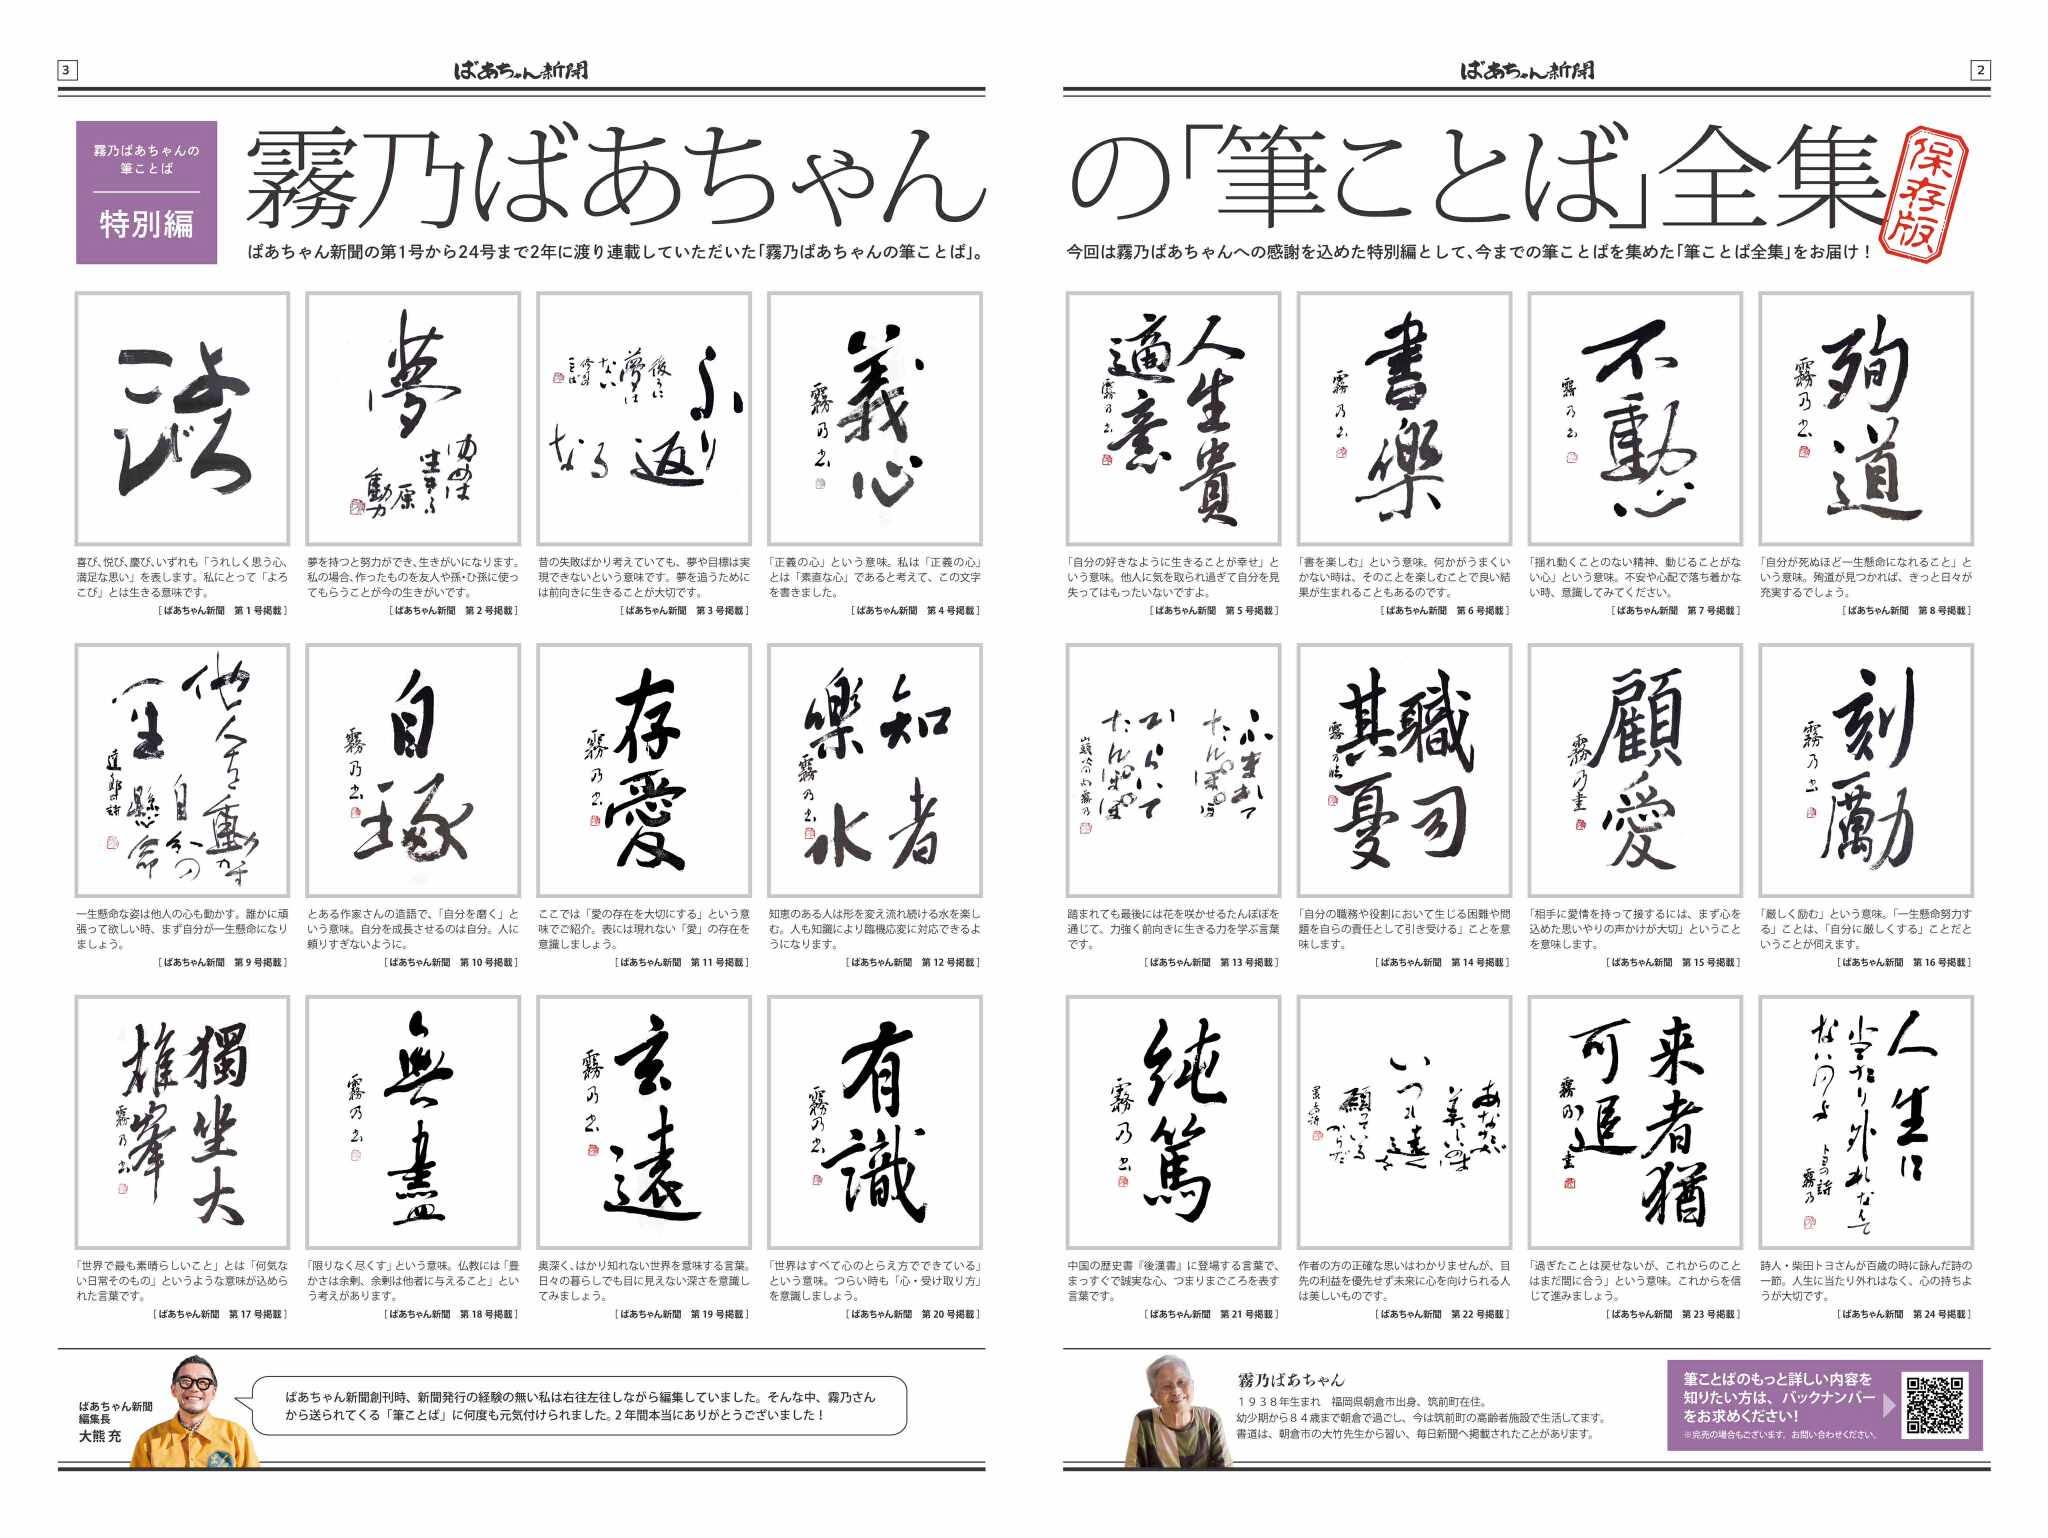 3
ばあちゃん新聞
ばあちゃん新聞
2
霧乃ばあちゃんの
筆ことば
特別編
霧乃ばあちゃんの「筆ことば」全集
保存版
ばあちゃん新聞の第1号から24号まで2年に渡り連載していただいた「霧乃ばあちゃんの筆ことば」。
今回は霧乃ばあちゃんへの感謝を込めた特別編として、今までの筆ことばを集めた「筆ことば全集」をお届け！
よろ
こび
喜び、悦び、慶び、いずれも「うれしく思う心、
満足な思い」を表します。私にとって「よろ
こび」とは生きる意味です。
［ばあちゃん新聞　第1号掲載］
夢
ゆめは
生きる
原
動力
夢を持つと努力ができ、生きがいになります。
私の場合、作ったものを友人や孫・ひ孫に使っ
てもらうことが今の生きがいです。
［ばあちゃん新聞　第2号掲載］
ふり
返
るな
後ろに
夢は
ない
修司
ことば
昔の失敗ばかり考えていても、夢や目標は実
現できないという意味です。夢を追うために
は前向きに生きることが大切です。
［ばあちゃん新聞　第3号掲載］
義心
霧乃書
「正義の心」という意味。私は「正義の心」
とは「素直な心」であると考えて、この文字
を書きました。
［ばあちゃん新聞　第4号掲載］
人生貴
適意
霧乃書
「自分の好きなように生きることが幸せ」と
いう意味。他人に気を取られ過ぎて自分を見
失ってはもったいないですよ。
［ばあちゃん新聞　第5号掲載］
書樂
霧乃書
「書を楽しむ」という意味。何かがうまくい
かない時は、そのことを楽しむことで良い結
果が生まれることもあるのです。
［ばあちゃん新聞　第6号掲載］
不動心
霧乃書
「揺れ動くことのない精神、動じることがな
い心」という意味。不安や心配で落ち着かな
い時、意識してみてください。
［ばあちゃん新聞　第7号掲載］
殉道
霧乃書
「自分が死ぬほど一生懸命になれること」と
いう意味。殉道が見つかれば、きっと日々が
充実するでしょう。
［ばあちゃん新聞　第8号掲載］
他人を動かす
自分の
一生懸命
一生懸命な姿は他人の心も動かす。誰かに頑
張って欲しい時、まず自分が一生懸命になり
ましょう。
［ばあちゃん新聞　第9号掲載］
自琢
霧乃書
とある作家さんの造語で、「自分を磨く」と
いう意味。自分を成長させるのは自分。人に
頼りすぎないように。
［ばあちゃん新聞　第10号掲載］
存愛
霧乃書
ここでは「愛の存在を大切にする」という意
味でご紹介。表には現れない「愛」の存在を
意識しましょう。
［ばあちゃん新聞　第11号掲載］
知者
樂水
霧乃書
知恵のある人は形を変え流れ続ける水を楽し
む。人も知識により臨機応変に対応できるよ
うになります。
［ばあちゃん新聞　第12号掲載］
ふまれて
たんぽぽ
ひらいて
たんぽぽ
山頭火句 霧乃
踏まれても最後には花を咲かせるたんぽぽを
通じて、力強く前向きに生きる力を学ぶ言葉
です。
［ばあちゃん新聞　第13号掲載］
職司
其憂
霧乃臨
「自分の職務や役割において生じる困難や問
題を自らの責任として引き受ける」ことを意
味します。
［ばあちゃん新聞　第14号掲載］
顧愛
霧乃書
「相手に愛情を持って接するには、まず心を
込めた思いやりの声かけが大切」ということ
を意味します。
［ばあちゃん新聞　第15号掲載］
刻励
霧乃書
「厳しく励む」という意味。「一生懸命努力す
る」ことは、「自分に厳しくする」ことだと
いうことが伺えます。
［ばあちゃん新聞　第16号掲載］
獨坐大
雄峯
霧乃書
「世界で最も素晴らしいこと」とは「何気な
い日常そのもの」というような意味が込めら
れた言葉です。
［ばあちゃん新聞　第17号掲載］
無盡
霧乃書
「限りなく尽くす」という意味。仏教には「豊
かさは余剰、余剰は他者に与えること」とい
う考えがあります。
［ばあちゃん新聞　第18号掲載］
玄遠
霧乃書
奥深く、はかり知れない世界を意味する言葉。
日々の暮らしでも目に見えない深さを意識し
てみましょう。
［ばあちゃん新聞　第19号掲載］
有識
霧乃書
「世界はすべて心のとらえ方でできている」
という意味。つらい時も「心・受け取り方」
を意識しましょう。
［ばあちゃん新聞　第20号掲載］
純篤
霧乃書
中国の歴史書『後漢書』に登場する言葉で、
まっすぐで誠実な心、つまりまごころを表す
言葉です。
［ばあちゃん新聞　第21号掲載］
あなたが
美しいのは
いつも遠くを
願っている
からだ
作者の方の正確な思いはわかりませんが、目
先の利益を優先せず未来に心を向けられる人
は美しいものです。
［ばあちゃん新聞　第22号掲載］
来者猶
可追
霧乃書
「過ぎたことは戻せないが、これからのこと
はまだ間に合う」という意味。これからを信
じて進みましょう。
［ばあちゃん新聞　第23号掲載］
人生に
当たり外れなんて
ないのよ
トヨの詩
霧乃
詩人・柴田トヨさんが百歳の時に詠んだ詩の
一節。人生に当たり外れはなく、心の持ちよ
うが大切です。
［ばあちゃん新聞　第24号掲載］
ばあちゃん新聞
編集長
大熊 充
ばあちゃん新聞創刊時、新聞発行の経験の無い私は右往左往しながら編集していました。そんな中、霧乃さん
から送られてくる「筆ことば」に何度も元気付けられました。2年間本当にありがとうございました！
霧乃ばあちゃん
１９３８年生まれ　福岡県朝倉市出身、筑前町在住。
幼少期から８４歳まで朝倉で過ごし、今は筑前町の高齢者施設で生活してます。
書道は、朝倉市の大竹先生から習い、毎日新聞へ掲載されたことがあります。
筆ことばのもっと詳しい内容を
知りたい方は、バックナンバー
をお求めください！
※完売の場合もございます。お問い合わせください。